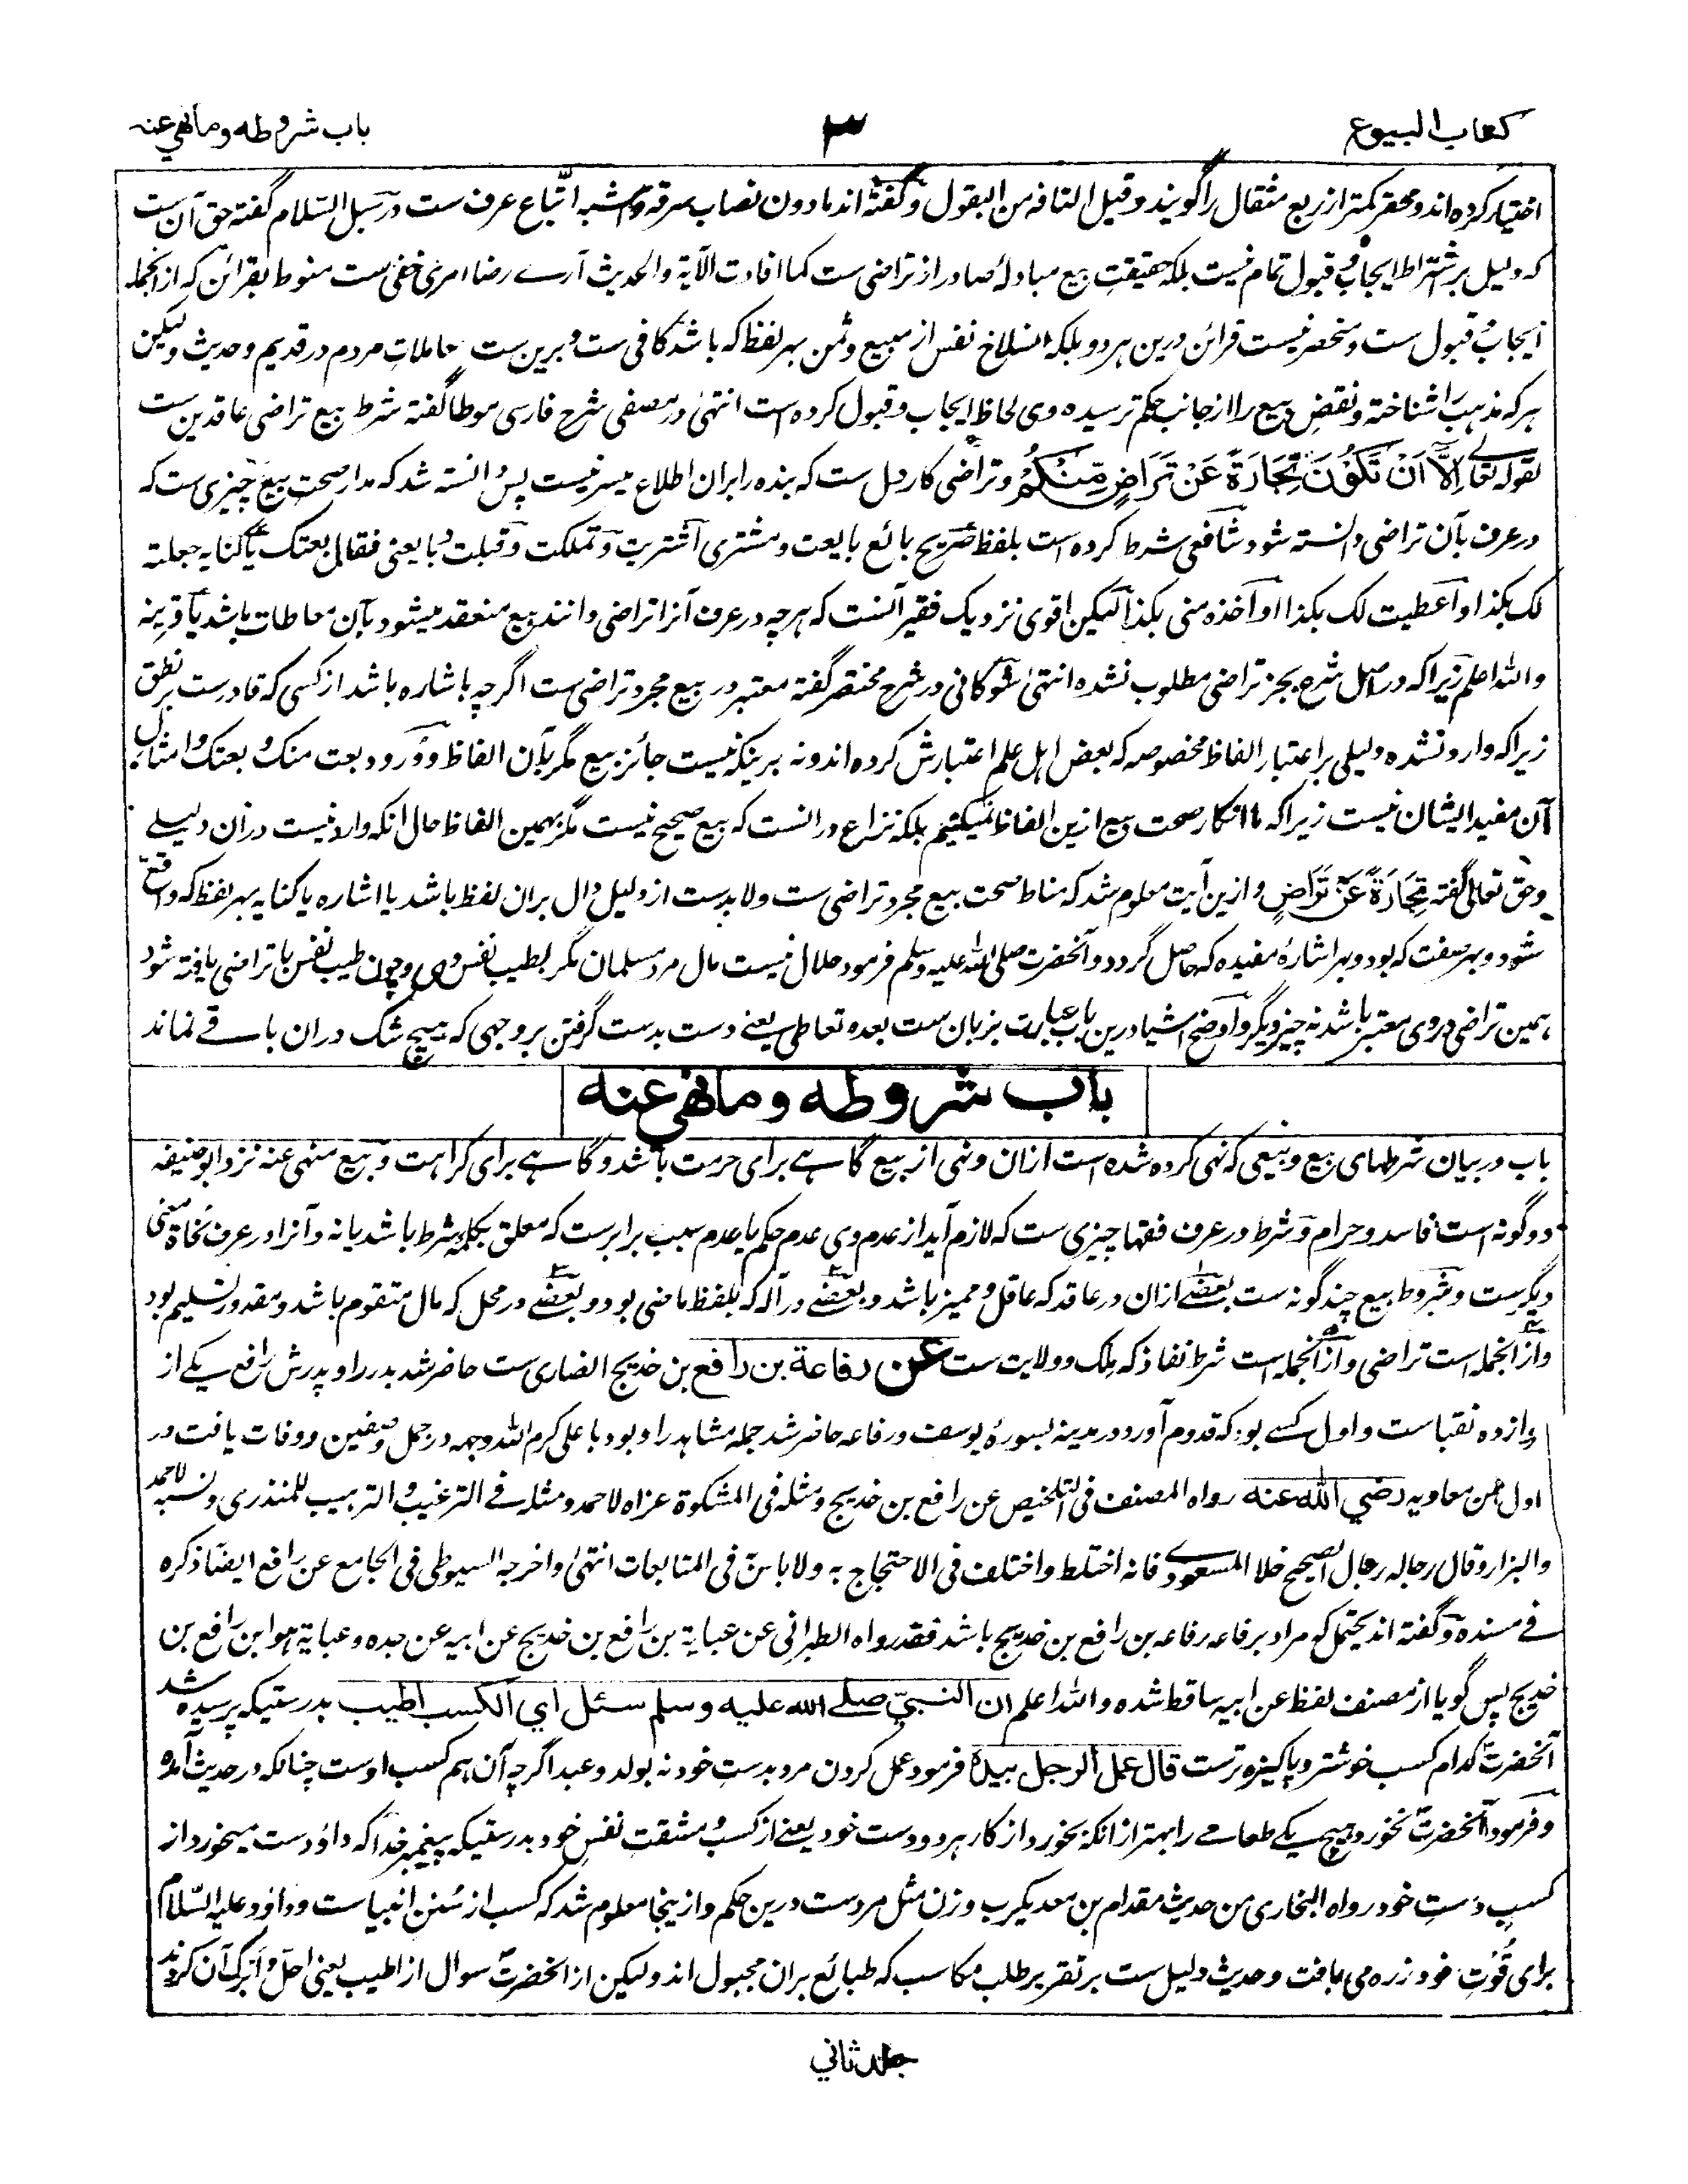 كتاب البيوع
٣
باب شروطه وما نهي عنه
اختیار کرده اند و محقر کمتر از ربع مثقال را گویند و قیل التافه من البقول و گفته اند ما دون نصاب سرقه و اشبه اتّباع عرف ست در سبل السّلام گفته حق آن ست
که دلیل بر اشتراط ایجاب و قبول تمام نیست بلکه حقیقتِ بیع مبادلهٔ صادر از تراضی ست کما افادت الآیة والحدیث آرے رضا امری خفی ست منوط بقرائن که از انجمله
ایجاب و قبول ست و منحصر نیست قرائن درین هر دو بلکه انسلاخ نفس از مبیع و ثمن بهر لفظ که باشد کافی ست و برین ست معاملات مردم در قدیم و حدیث ولیکن
هر که مذهب را شناخته و نقضِ بیع را از جانب حکم ترسیده وی لحاظ ایجاب و قبول کرده است انتهیٰ در مصفی شرح فارسی موطا گفته شرط بیع تراضی عاقدین ست
لقوله تعالے اِلَّآ اَنْ تَكُوْنَ تِجَارَةً عَنْ تَرَاضٍ مِّنْكُمْ و تراضی کار دل ست که بنده را بران اطلاع میسر نیست پس دانسته شد که مدار صحت بیع چیزی ست که
در عرف بآن تراضی دانسته شود شافعی شرط کرده است بلفظ صریح بائع بایعت و مشتری اشتریت و تملکت و قبلت و بایعنی فقال بعتک یا کنایه جعلته
لک بکذا او اعطیت لک بکذا او آخذه منی بکذا لیکن اقوی نزدیک فقیر آنست که هر چه در عرف آنرا تراضی دانند بیع منعقد میشود بآن معاطات باشد یا قرینه
والله اعلم زیرا که در اصل شرع بجز تراضی مطلوب نشده انتهیٰ شوکانی در شرح مختصر گفته معتبر در بیع مجرد تراضی ست اگرچه باشاره باشد از کسی که قادر ست بر نطق
زیرا که وارد نشده دلیلی بر اعتبار الفاظ مخصوصه که بعض اهل علم اعتبارش کرده اند و نه برینکه نیست جائز بیع مگر بآن الفاظ و ورود بعت منک و بعتک و امثال
آن مفید ایشان نیست زیرا که ما انکار صحت بیع ازین الفاظ نمیکنیم بلکه نزاع در انست که بیع صحیح نیست مگر بهمین الفاظ حال آنکه وارد نیست در ان دلیلے
و حق تعالی گفته تِجَارَةً عَنْ تَرَاضٍ و ازین آیت معلوم شد که مناط صحت بیع مجرد تراضی ست و لا بدست از دلیل دال بران لفظ باشد یا اشاره یا کنایه بهر لفظ که واقع
شود و بهر صفت که بود و بهر اشارهٔ مفیده که حاصل گردد و آنحضرت صلی الله علیه وسلم فرمود حلال نیست مال مرد مسلمان مگر بطیب نفس وی و چون طیب نفس با تراضی یافته شود
همین تراضی در وی معتبر باشد نه چیز دیگر و اوضح اشیا درین باب عبارت بزبان ست بعده تعاطی یعنے دست بدست گرفتن بر وجهی که هیچ شک دران باقے نماند
باب شروطه وما نهي عنه
باب در بیان شرطهای بیع و بیعی که نهی کرده شده است ازان و نهی از بیع گاهے برای حرمت باشد و گاهے برای کراهت و بیع منهی عنه نزد ابو حنیفه
دو گونه است فاسد و حرام و شرط در عرف فقها چیزی ست که لازم آید از عدم وی عدم حکم یا عدم سبب برابر ست که معلق بکلمهٔ شرط باشد یا نه و آنرا در عرف نحاة معنی
دیگر ست و شروط بیع چند گونه ست بعضے ازان در عاقد که عاقل و ممیز باشد و بعضے در آله که بلفظ ماضی بود و بعضے در محل که مال متقوم باشد و مقدور تسلیم بود
و از انجمله است تراضی و از انجمله است شرط نفاذ که ملک و ولایت ست عن رفاعة بن رافع بن خدیج انصاری ست حاضر شد بدر را و پدرش رافع یکے از
دوازده نقباست و اول کسے بود که قدوم آورد در مدینه بسورهٔ یوسف و رفاعه حاضر شد جمله مشاهد را و بود با علی کرم الله وجهه در جمل و صفین و وفات یافت در
اول زمن معاویه رضي الله عنه رواه المصنف فی التلخیص عن رافع بن خدیج و مثله فی المشکوة عزاه لاحمد و مثله فے الترغیب و الترهیب للمنذری و نسبه لاحمد
والبزار و قال رجاله رجال الصحیح خلا المسعودے فانه اختلط و اختلف فی الاحتجاج به ولا باس فی المتابعات انتهیٰ و اخرجه السیوطی فی الجامع عن رافع ایضًا ذکره
فے مسنده و گفته اند یحتمل که مراد بر فاعه رفاعه بن رافع بن خدیج باشد فقد رواه الطبرانی عن عبایة بن رافع بن خدیج عن ابیه عن جده و عبایة هو ابن رافع بن
خدیج پس گویا از مصنف لفظ عن ابیه ساقط شده والله اعلم ان النبيّ صلے الله عليه وسلم سئل أي الكسب اطيب بدرستیکه پرسیده شد
آنحضرت کدام کسب خوشتر و پاکیزه ترست قال عمل الرجل بيده فرمود عمل کردن مرد بدستِ خود نه بولد و عبد اگرچه آن هم کسب اوست چنانکه در حدیث آمده
و فرمود آنحضرت نخورد هیچ یکے طعامے را بهتر از انکه بخورد از کار هر دو دست خود یعنے از کسب و مشقت نفسِ خود بدرستیکه پیغمبر خدا که داؤدست میخورد از
کسبِ دستِ خود رواه البخاری من حدیث مقدام بن معدیکرب و زن مثل مردست درین حکم و ازینجا معلوم شد که کسب از سُنن انبیاست و داؤد علیه السّلام
برای قُوتِ خود زره می بافت و حدیث دلیل ست بر تقریر طلب مکاسب که طبائع بران مجبول اند ولیکن از آنحضرت سوال از اطیب یعنی احلّ و ابرک آن کردند
جلد ثاني